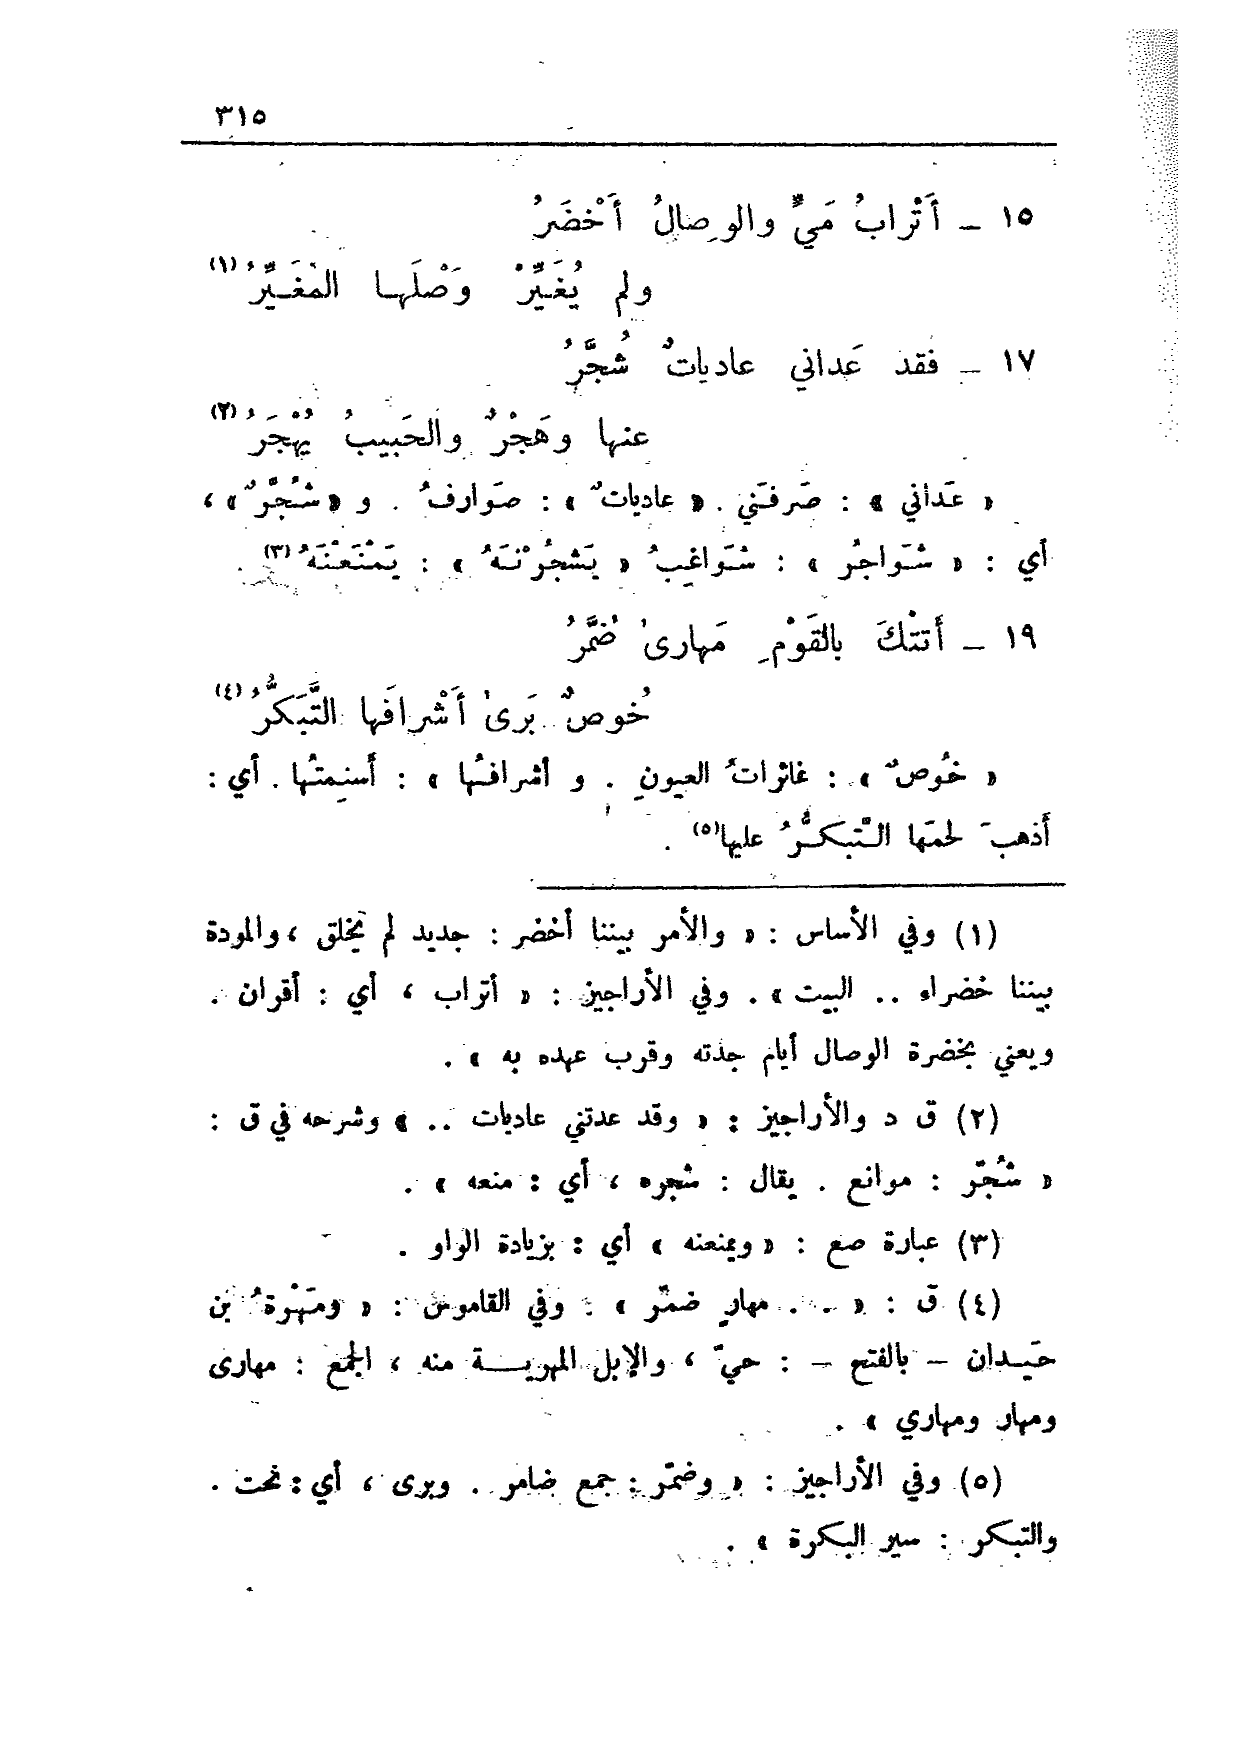 ٣١٥
١٥ ــ أَتْرابُ مَيٍّ والوِصالُ أَخْضَرُ
ولم يُغَيِّرْ وَصْلَها المُغَيِّرُ (١)
١٧ ــ فقد عَداني عادياتٌ شُجَّرُ
عنها وهَجْرٌ والحَبيبُ يُهْجَرُ (٢)
« عَداني » : صَرفَني . « عادياتٌ » : صَوارفُ . و « شُجَّرٌ » ،
أي : « شَواجِرُ » : شَواغِبُ « يَشجُرْنَهُ » : يَمْنَعْنَهُ (٣) .
١٩ ــ أَتتْكَ بالقَوْمِ مَهارىٰ ضُمَّرُ
خُوصٌ بَرىٰ أَشْرافَها التَّبَكُّرُ (٤)
« خُوصٌ » : غائراتُ العيونِ . و أشرافُها » : أَسنِمتُها . أي :
أَذهبَ لحمَها التّبكُّرُ عليها (٥) .
(١) وفي الأساس : « والأمر بيننا أخضر : جديد لم يخلق ، والمودة
بيننا خضراء .. البيت » . وفي الأراجيز : « أتراب ، أي : أقران .
ويعني بخضرة الوصال أيام جدته وقرب عهده به » .
(٢) ق د والأراجيز : « وقد عدتني عاديات .. » وشرحه في ق :
« شُجّر : موانع . يقال : شجره ، أي : منعه » .
(٣) عبارة صع : « ويمنعنه » أي : بزيادة الواو .
(٤) ق : « . . مهارٍ ضمّر » . وفي القاموس : « ومَهْرةُ بن
حَيدان – بالفتح – : حيّ ، والإبل المهرية منه ، الجمع : مهارى
ومهار ومهاري » .
(٥) وفي الأراجيز : « وضمّر : جمع ضامر . وبرى ، أي : نحت .
والتبكر : سير البكرة » .